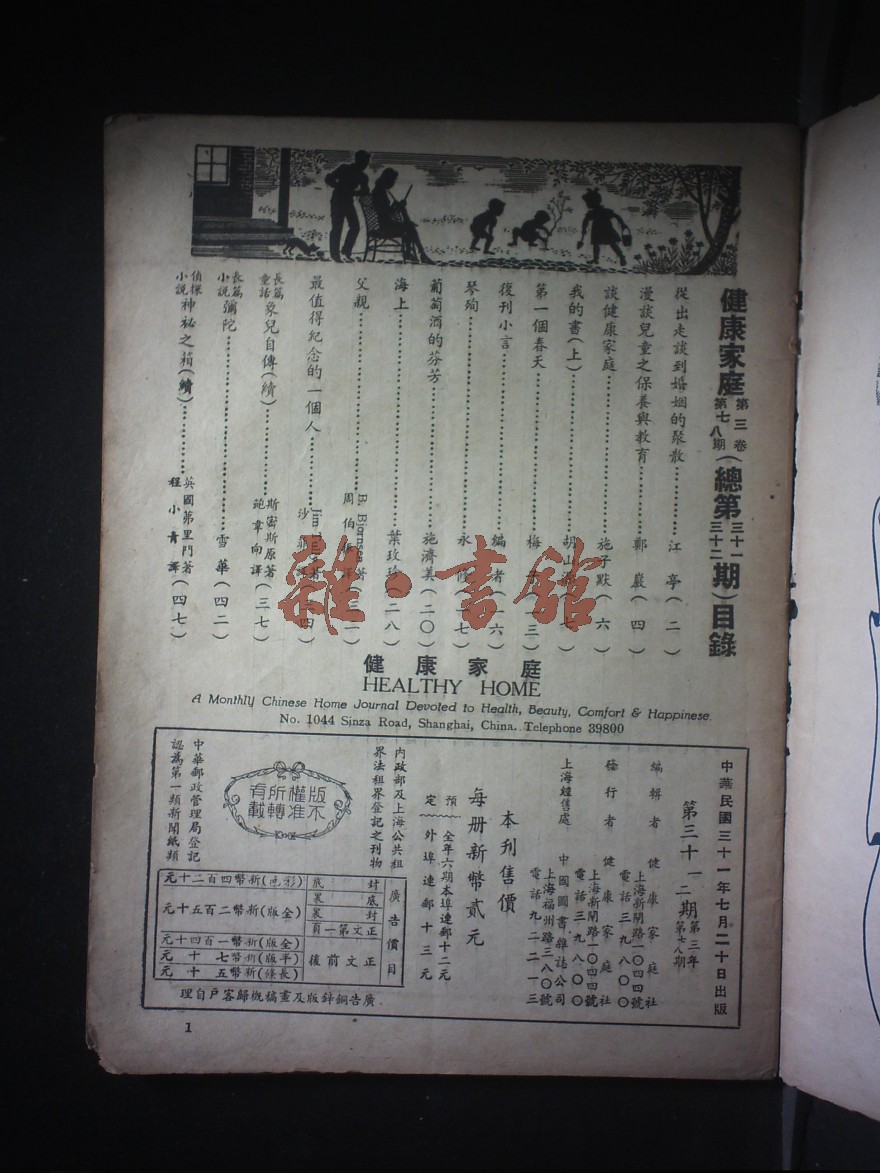 健康家庭 第三卷 第七八期 (總第三十一 三十二期) 目錄
從出走談到婚姻的聚散 江亭 (二)
漫談兒童之保養與教育 鄭巖 (四)
談健康家庭 施子默 (六)
我的書(上) 胡山 (七)
第一個春天 梅 (三)
復刊小言 編者 (六)
琴殉 永 (七)
葡萄酒的芬芳 施濟美 (二〇)
海上 葉玫 (二八)
父親 B. Bjornsen 著 周伯 (三一)
最值得紀念的一個人 Jim 著 沙 (四)
長篇童話 象兒自傳(續) 斯密斯原著 鮑韋向譯 (三七)
長篇小說 彌陀 雪華 (四二)
偵探小說 神祕之箱(續) 英國第里門著 程小青譯 (四七)
雜·書館
健康家庭
HEALTHY HOME
A Monthly Chinese Home Journal Devoted to Health, Beauty, Comfort & Happinese.
No. 1044 Sinza Road, Shanghai, China. Telephone 39800
中華民國三十一年七月二十日出版
第三十一二期 第三年 第七八期
編輯者 健康家庭社
上海新閘路一〇四四號
電話三九八〇〇
發行者 健康家庭社
上海新閘路一〇四四號
電話三九八〇〇
上海經售處 中國圖書雜誌公司
上海福州路三八〇號
電話九二二一三
本刊售價
每册新幣貳元
預定 全年六期本埠連郵十二元
外埠連郵十三元
內政部及上海公共租
界法租界登記之刊物
版權所有
不准轉載
中華郵政管理局登記
認為第一類新聞紙類
廣告價目
封底 (彩色)新幣四百二十元
底裏 封裏 正文第一頁 (全版)新幣二百五十元
正文前後 (全版)新幣一百四十元
(半版)新幣七十元
(長條)新幣五十元
廣告銅鋅版及畫稿概歸客戶自理
1